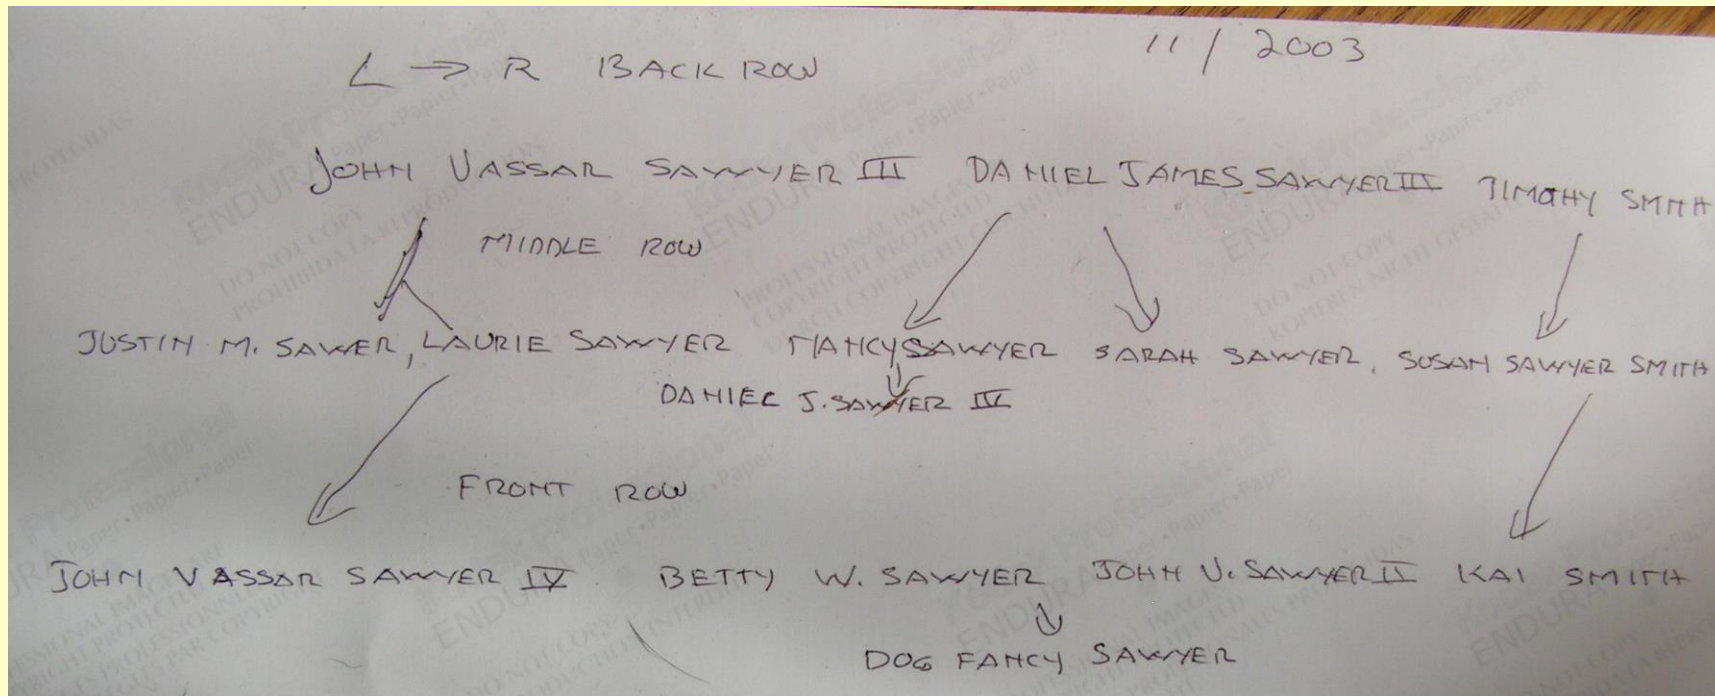 11/2003
L → R BACK ROW
JOHN VASSAR SAWYER III DANIEL JAMES SAWYER III TIMOTHY SMITH
MIDDLE ROW
JUSTIN M. SAWER, LAURIE SAWYER NANCY SAWYER SARAH SAWYER, SUSAN SAWYER SMITH
DANIEL J. SAWYER IV
FRONT ROW
JOHN VASSAR SAWYER IV BETTY W. SAWYER JOHN V. SAWYER II KAI SMITH
DOG FANCY SAWYER